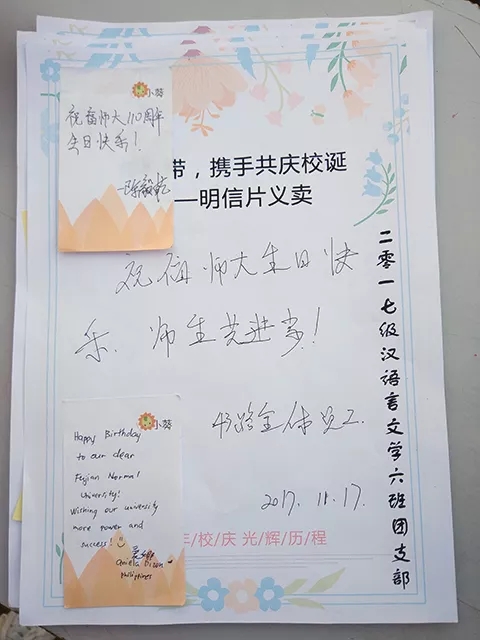 小葵
祝福师大110周年
生日快乐！
带，携手共庆校诞
—明信片义卖
二零一七级汉语言文学六班团支部
祝福师大生日快
乐，师生共进步！
43路全体员工
2017.11.17.
小葵
Happy Birthday
to our dear
Fujian Normal
University!
Wishing our university
more power and
success!
Philippines
年/校/庆 光/辉/历/程